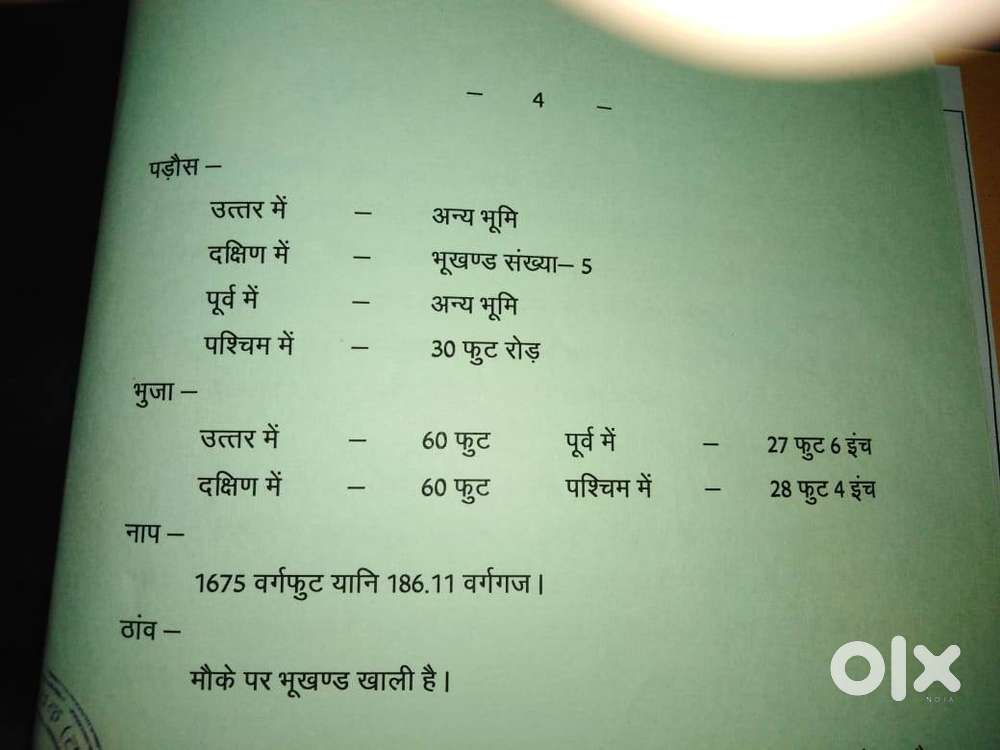 – 4 –
पड़ौस –
उत्तर में – अन्य भूमि
दक्षिण में – भूखण्ड संख्या– 5
पूर्व में – अन्य भूमि
पश्चिम में – 30 फुट रोड़
भुजा –
उत्तर में – 60 फुट पूर्व में – 27 फुट 6 इंच
दक्षिण में – 60 फुट पश्चिम में – 28 फुट 4 इंच
नाप –
1675 वर्गफुट यानि 186.11 वर्गगज।
ठांव –
मौके पर भूखण्ड खाली है।
olx
INDIA